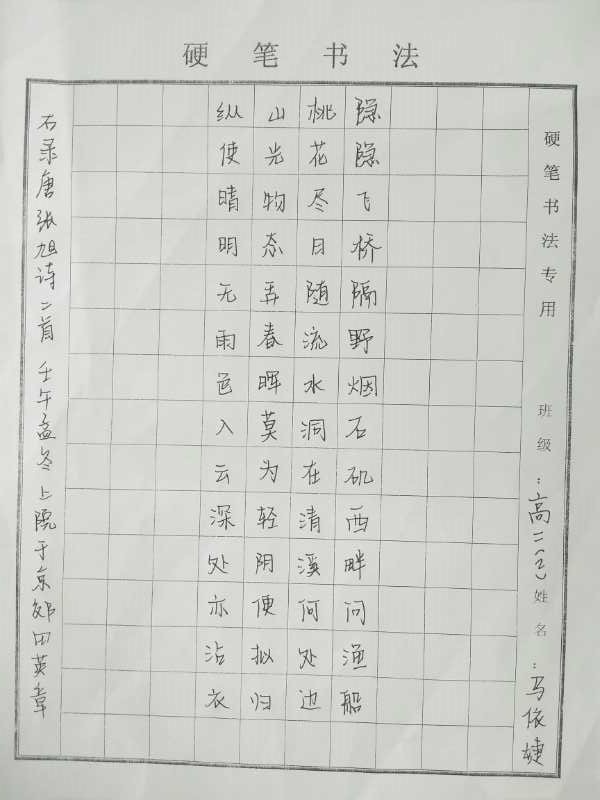 硬笔书法
硬笔书法专用 班级：高二(2) 姓名：马依婕
隐隐飞侨隔野烟石矶西畔问渔船
桃花尽日随流水洞在清溪何处边
山光物态弄春晖莫为轻阴便拟归
纵使晴明无雨色入云深处亦沾衣
右录唐张旭诗二首 壬午孟冬上院于京郊田英章